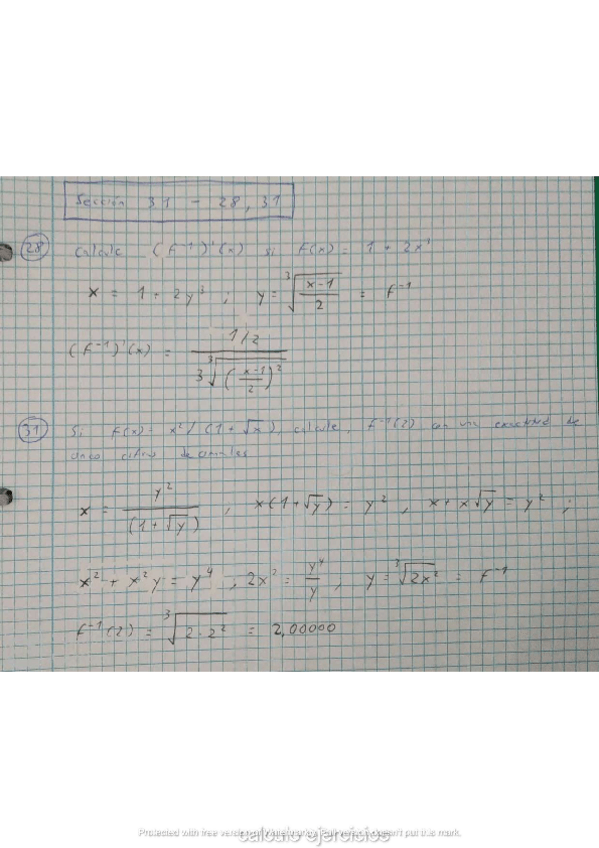 Sección 31 - 28, 31
28 Calcule (f⁻¹)'(x) si f(x) = 1 + 2x³
x = 1 + 2y³ ; y = ∛((x-1)/2) = f⁻¹
(f⁻¹)'(x) = (1/2) / (3∛(((x-1)/2)²))
31 Si f(x) = x² / (1 + √x), calcule, f⁻¹(2) con una exactitud de
cinco cifras decimales
x = y² / (1 + √y) , x(1 + √y) = y² , x + x√y = y² ;
x² + x²y = y⁴ , 2x² = y⁴/y , y = ∛(2x²) = f⁻¹
f⁻¹(2) = ∛(2·2²) = 2,00000
Protected with free version of Watermarkly. Full version doesn't put this mark.
calculo ejercicios